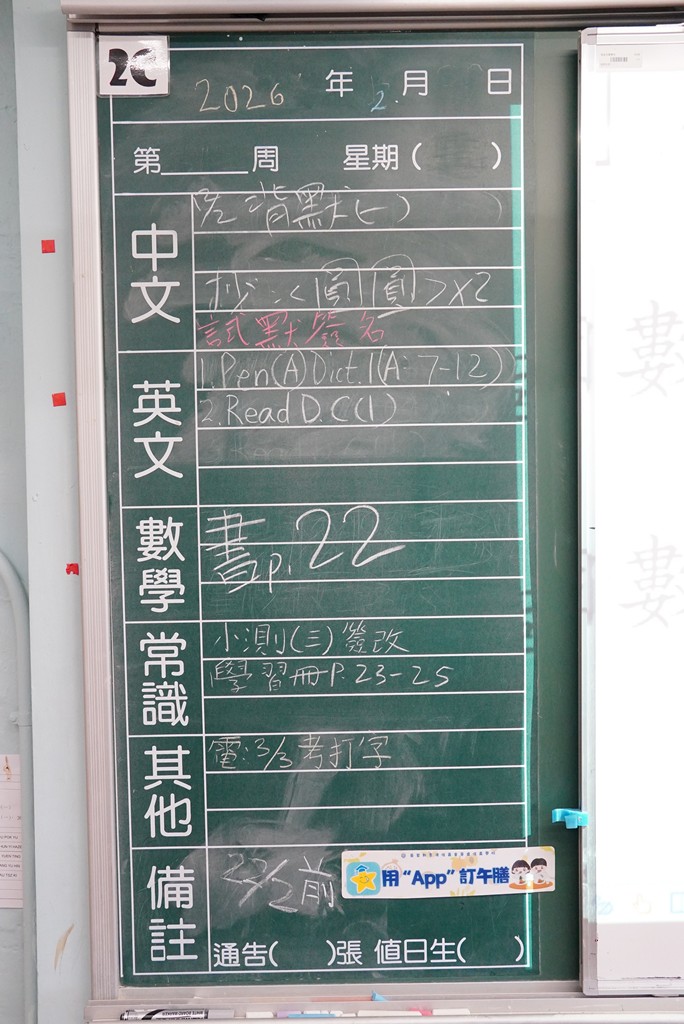 2C
2026 年 2 月 日
第____周 星期( )
中文
背默(一)
抄:<圓 圓>x2
試默簽名
英文
1.Pen(A) Dict.1(A: 7-12)
2.Read D.C(1)
數學
書p.22
常識
小測(三)簽改
學習冊P.23-25
其他
電:3/3考打字
備註
22/2前
用“App”訂午膳
通告( )張 值日生( )
數
數